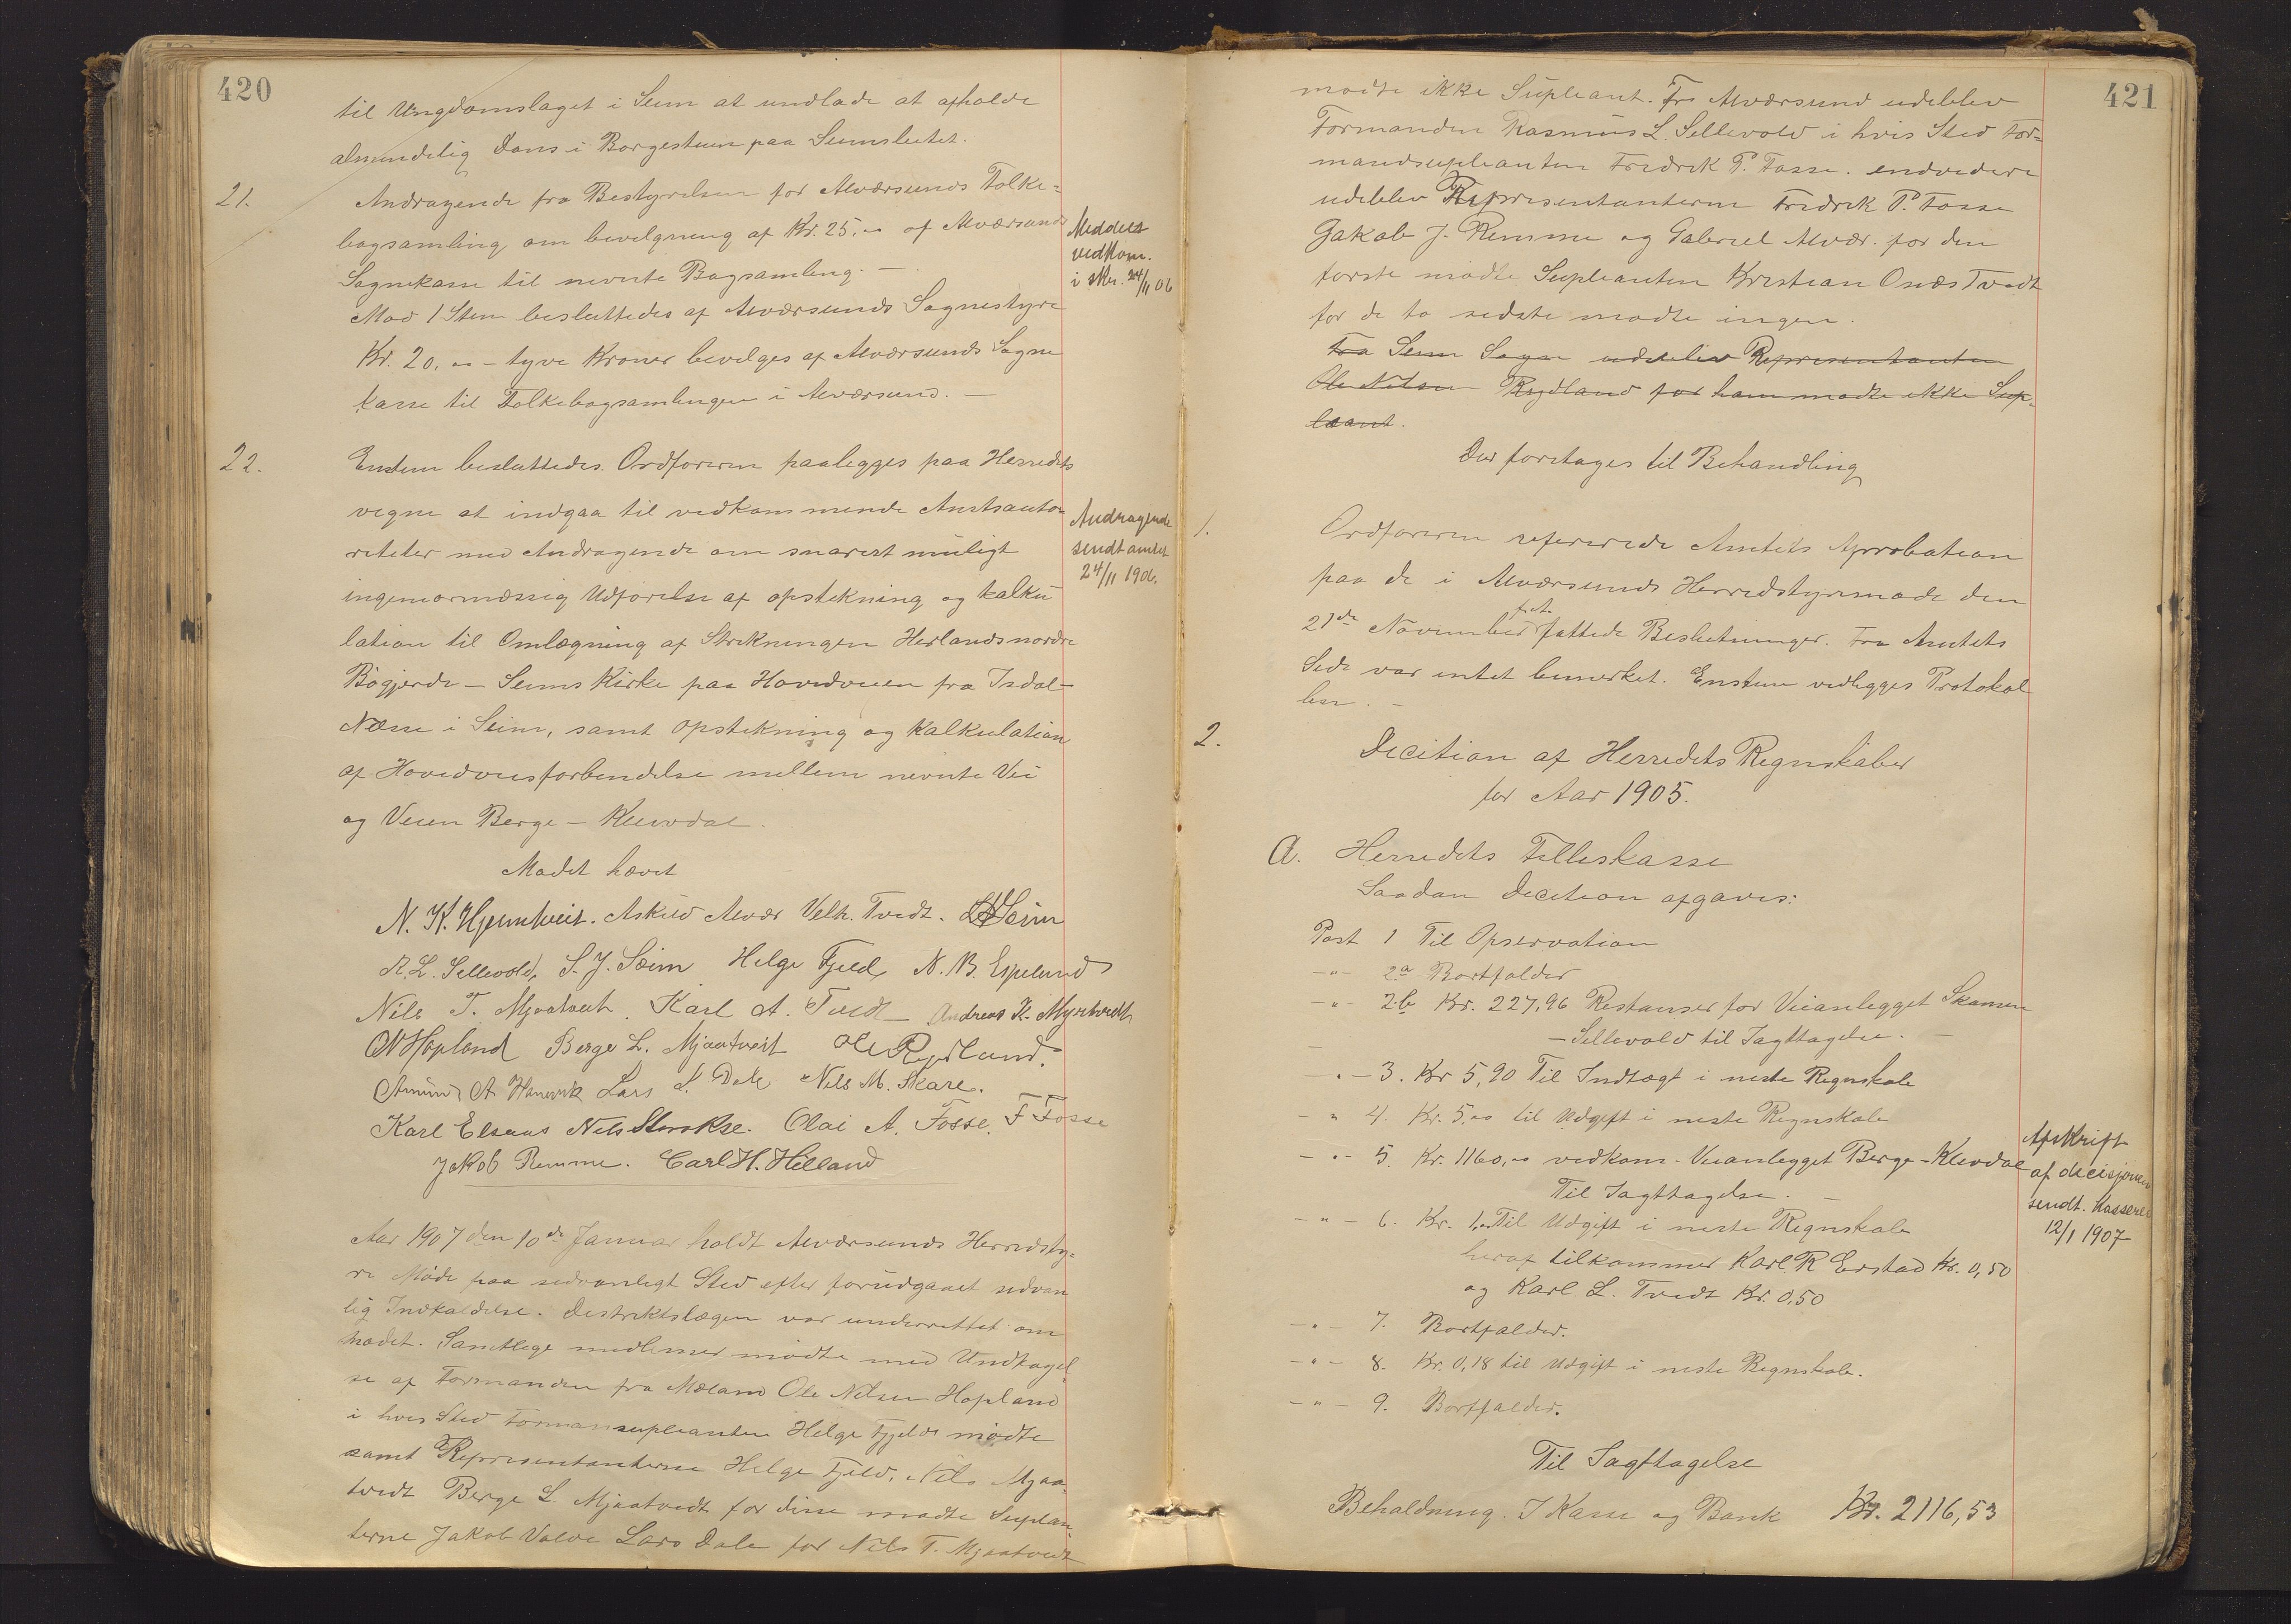 420
til Ungdomslaget i Seim at undlade at afholde
almindelig Dans i Borgestuen paa Seimsletet.
21.
Andragende fra Bestyrelsen for Alværsunds Folke-
bogsamling om bevilgning af Kr. 25,00 af Alværsunds
Sognekasse til nevnte Bogsamling. —
Mod 1 Stem besluttedes af Alværsunds Sognestyre
Kr. 20,00 – tyve Kroner bevilges af Alværsunds Sogne
kasse til Folkebogsamlingen i Alværsund. —
Meddelt
vedkom.
i skr. 24/11 06
22.
Enstem besluttedes. Ordføreren paalegges paa Herredets
vegne at indgaa til vedkommende Amtsauto-
riteter med Andragende om snarest muligt
ingeniørmæssig Udførelse af opstikning og kalku
lation til Omlægning af Strekningen Herlandsnordre
Bøgjerde – Seims Kirke paa Hovedveien fra Isdal –
Næsse i Seim, samt opstikning og Kalkulation
af Hovedveisforbindelse mellem nevnte Vei
og Veien Berge – Kleivdal.
Andragende
sendt amtet
24/11 1906.
Mødet hævet
N. K. Hjemtveit. Askild Alvær Velh. Tvedt. Seim
R. L. Sellevold, S. J. Seim Helge Fjeld N. B. Espelund
Nils T. Mjaatveit. Karl A. Tvedt Andreas K. Myrtvedt
ON Hopland Berge L. Mjaatveit Ole Rydland.
Amund A Hanevik Lars L. Dale Nils M. Skare.
Karl Elsaas Nils Storokse. Olai A. Fosse. F Fosse
Jakob Remme. Carl H. Helland
Aar 1907 den 10de Januar holdt Alværsunds Herredsty-
re Møde paa sedvanligt Sted efter forudgaaet sedvan
lig Indkaldelse. Destriktslægen var underrettet om
mødet. Samtlige medlemer mødte med Undtagel-
se af Formanden fra Mæland Ole Nilsen Hopland
i hvis Sted Formansupleanten Helge Fjeld mødte
samt Representanterne Helge Fjeld, Nils Mjaa-
tvedt Berge L. Mjaatvedt for disse mødte Suplean-
terne Jakob Valde Lars Dale for Nils T. Mjaatvedt
421
mødte ikke Supleant. Fra Alværsund udeblev
Formanden Rasmus L. Sellevold i hvis Sted For-
mandsupleanten Fredrik P. Fosse. endvidere
udeblev Representanterne Fredrik P. Fosse
Jakob J. Remme og Gabriel Alvær. for den
første mødte Supleanten Kristian Tvedt
for de to sidste mødte ingen.
Fra Seim Sogn udeblev Representanten
Ole Nilsen Rydland for ham mødte ikke Sup-
leant.
Der foretages til Behandling
1.
Ordføreren refererede Amtets Aprobation
paa de i Alværsunds Herredstyremøde den
21de November f.A. fattede Beslutninger. Fra Amtets
Side var intet bemerket. Enstem vedlegges Protokol
len. –
2.
Decition af Herredets Regnskaber
for Aar 1905.
a. Herredets Felleskasse
Saadan Decition afgaves:
Post 1 Til Opservation
–"– 2a Bortfalder
–"– 2b Kr. 227,96 Restanser for Veianlegget Skamen
– Sellevold til Iagttagelse. –
–"– 3. Kr 5,90 Til Indtægt i neste Regnskab
–"– 4. Kr. 5,00 til Udgift i neste Regnskab
–"– 5. Kr. 1160,00 vedkom. Veianlegget Berge – Kleivdal
Til Iagttagelse. –
–"– 6. Kr. 1,00 Til Udgift i neste Regnskab
heraf tilkommer Karl R Erstad Kr. 0,50
og Karl L. Tvedt Kr. 0,50
–"– 7. Bortfalder.
–"– 8. Kr. 0,18 til Udgift i neste Regnskab.
–"– 9. Bortfalder.
Afskrift
af decisjonen
sendt. Kasserer
12/1 1907
Til Iagttagelse
Beholdning. I Kasse og Bank Kr. 2116,53